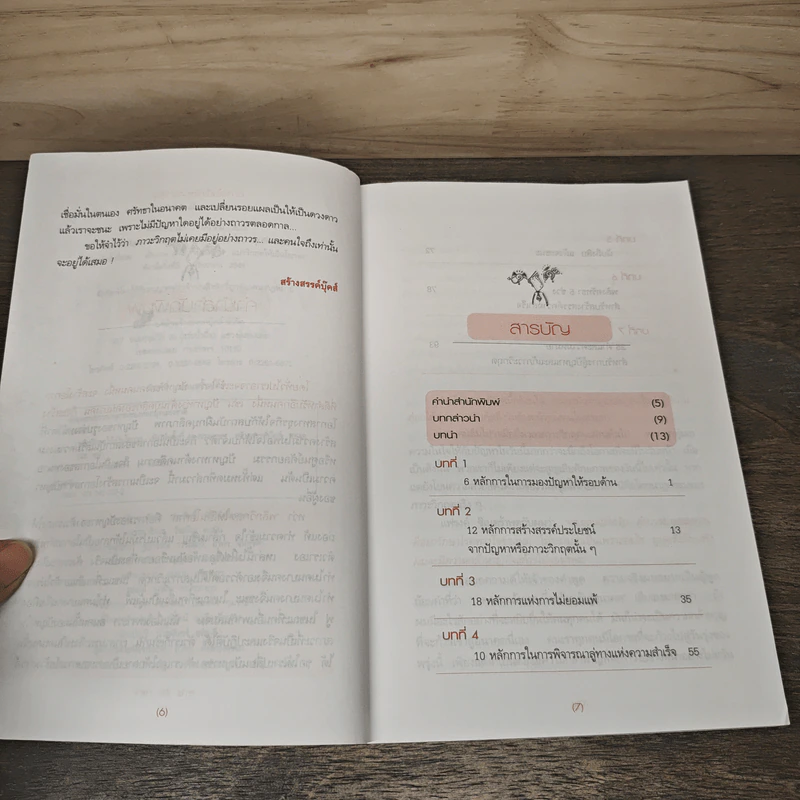 เชื่อมั่นในตนเอง ศรัทธาในอนาคต และเปลี่ยนรอยแผลเป็นให้เป็นดวงดาว
แล้วเราจะชนะ เพราะไม่มีปัญหาใดอยู่ได้อย่างถาวรตลอดกาล...
ขอให้จำไว้ว่า ภาวะวิกฤตไม่เคยมีอยู่อย่างถาวร... และคนใจถึงเท่านั้น
จะอยู่ได้เสมอ !
สร้างสรรค์บุ๊คส์
(6)
สารบัญ
คำนำสำนักพิมพ์ (5)
บทกล่าวนำ (9)
บทนำ (13)
บทที่ 1
6 หลักการในการมองปัญหาให้รอบด้าน 1
บทที่ 2
12 หลักการสร้างสรรค์ประโยชน์ 13
จากปัญหาหรือภาวะวิกฤตนั้น ๆ
บทที่ 3
18 หลักการแห่งการไม่ยอมแพ้ 35
บทที่ 4
10 หลักการในการพิจารณาลู่ทางแห่งความสำเร็จ 55
(7)